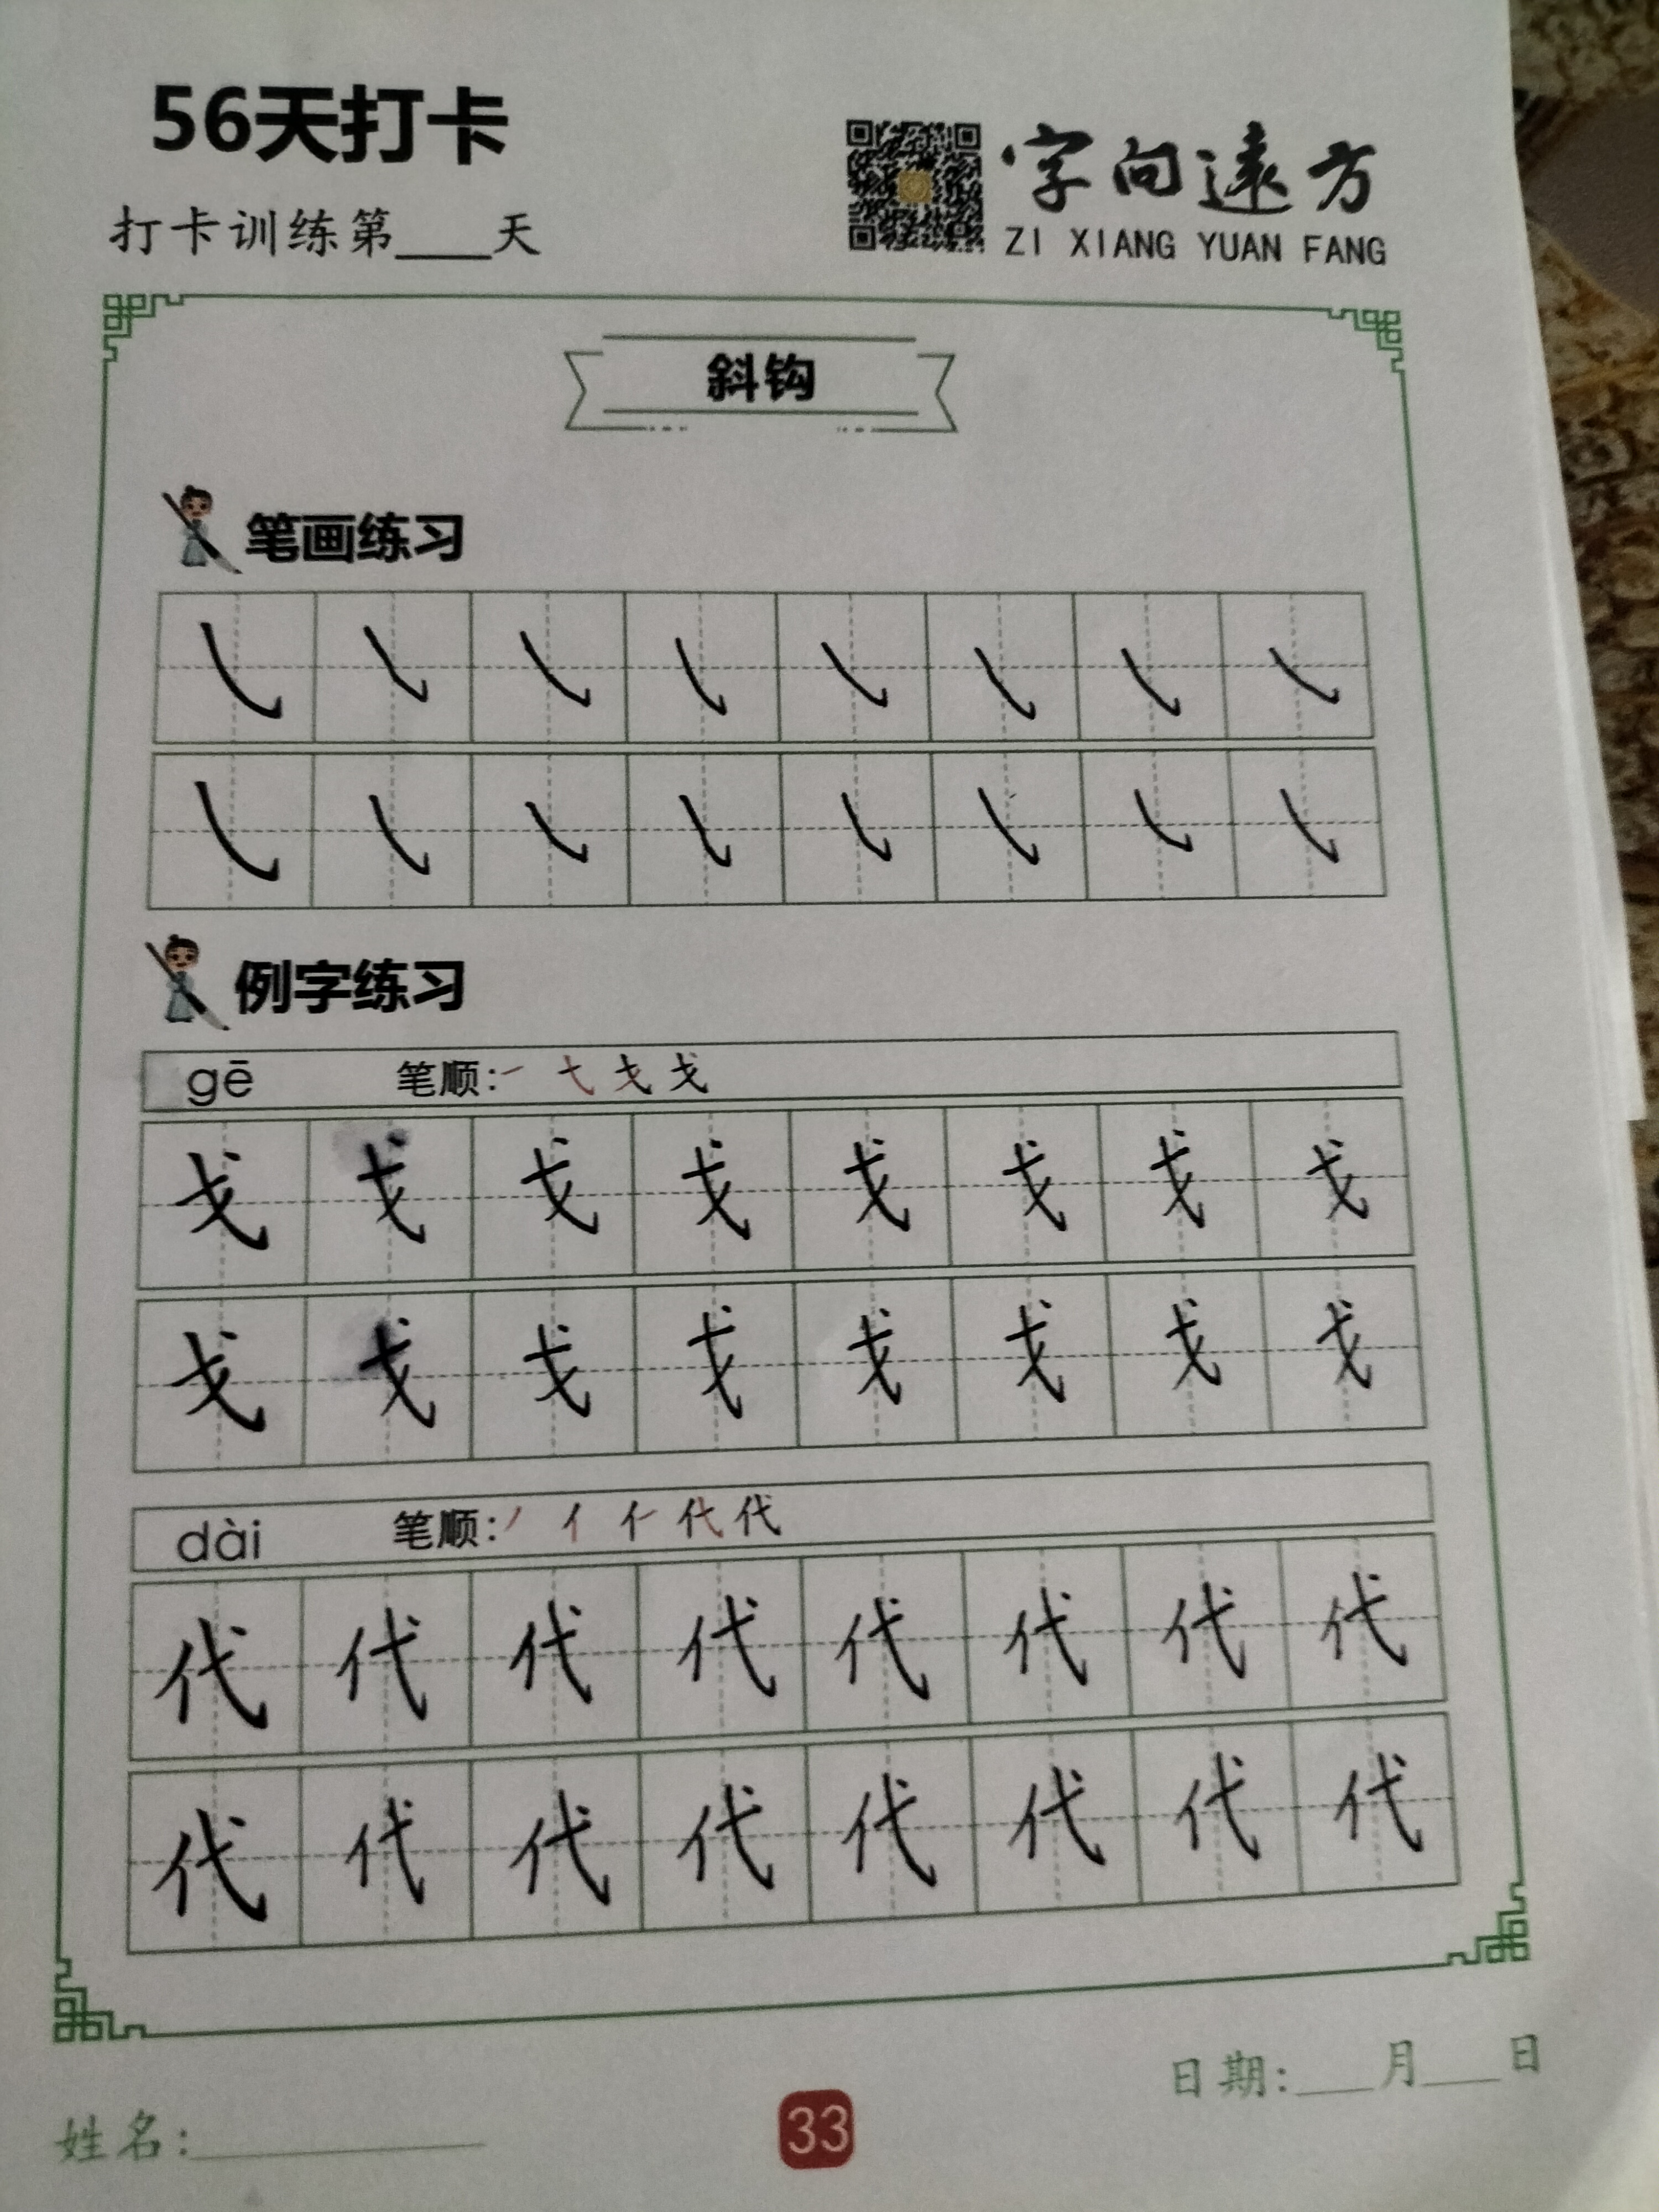 56天打卡
打卡训练第____天
字向遠方
ZI XIANG YUAN FANG
斜钩
笔画练习
㇂ ㇂ ㇂ ㇂ ㇂ ㇂ ㇂ ㇂
㇂ ㇂ ㇂ ㇂ ㇂ ㇂ ㇂ ㇂
例字练习
gē 笔顺:一 弋 戈 戈
戈 戈 戈 戈 戈 戈 戈 戈
戈 戈 戈 戈 戈 戈 戈 戈
dài 笔顺:丿 亻 仁 代 代
代 代 代 代 代 代 代 代
代 代 代 代 代 代 代 代
日期:___月___日
姓名:__________
33